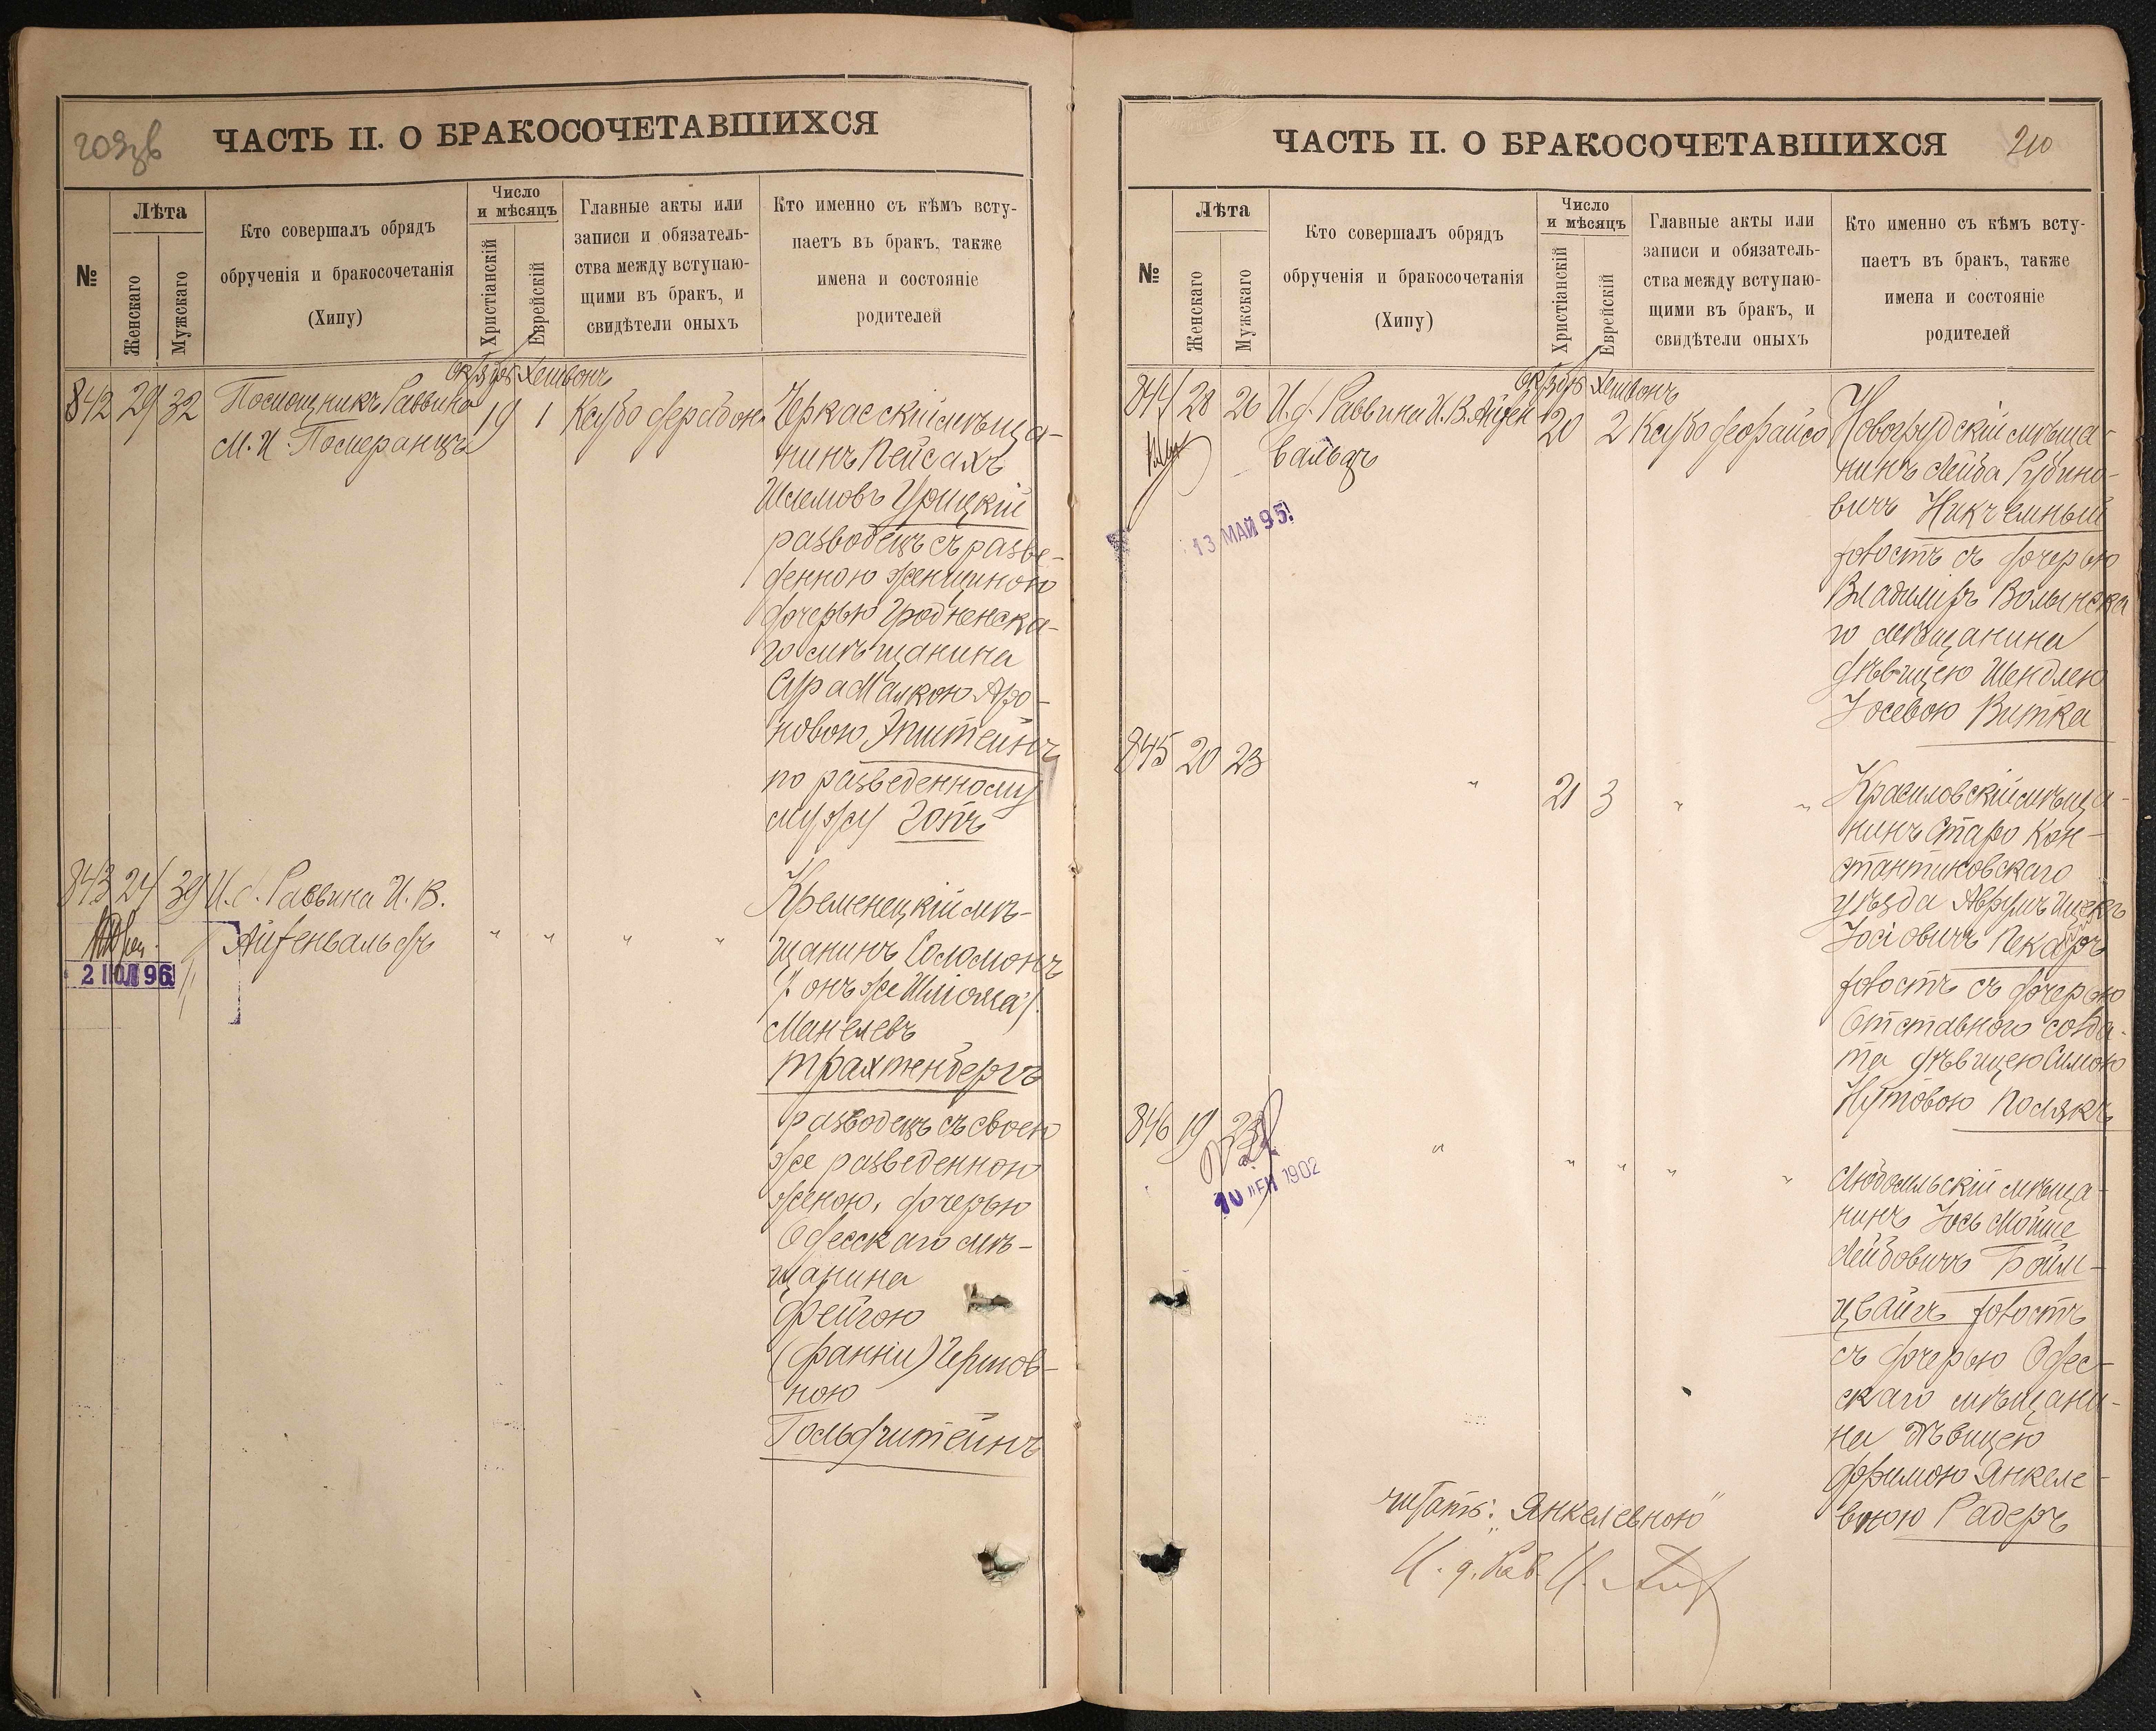 209об
ЧАСТЬ II. О БРАКОСОЧЕТАВШИХСЯ
№
Лѣта
Женскаго
Мужскаго
Кто совершалъ обрядъ
обрученія и бракосочетанія
(Хипу)
Число
и мѣсяцъ
Христіанскій
Еврейскій
Главные акты или
записи и обязатель-
ства между вступаю-
щими въ бракъ, и
свидѣтели оныхъ
Кто именно съ кѣмъ всту-
паетъ въ бракъ, также
имена и состояніе
родителей
842 29 32
Помощникъ Раввина
М. И. Померанцъ
Октябрь Хешвонъ
19 1
Ксубо
Черкасскій мѣща-
нинъ Пейсахъ
Шлемовъ Урицкій
разводецъ съ разве-
денною женщиною
дочерью Гродненска-
го мѣщанина
Сура Малкою Аро-
новою Эпштейнъ
по разведенному
мужу Готъ
843 24 39
И. д. Раввина И. В.
Айзенвальдъ
" " " "
2 ІЮЛ 96
Кременецкій мѣ-
щанинъ Соломонъ
/онъ же Шліома/
Манелевъ
Трахтенбергъ
разводецъ съ своею
же разведенною
женою, дочерью
Одесскаго мѣ-
щанина
Фейгою
(Фанни) Гершов-
ною
Гольдштейнъ
ЧАСТЬ II. О БРАКОСОЧЕТАВШИХСЯ
210
№
Лѣта
Женскаго
Мужскаго
Кто совершалъ обрядъ
обрученія и бракосочетанія
(Хипу)
Число
и мѣсяцъ
Христіанскій
Еврейскій
Главные акты или
записи и обязатель-
ства между вступаю-
щими въ бракъ, и
свидѣтели оныхъ
Кто именно съ кѣмъ всту-
паетъ въ бракъ, также
имена и состояніе
родителей
844 28 26
И. д. Раввина И. В. Айзен
вальдъ
Октябрь Хешвонъ
20 2
Ксубо деорайсо
13 МАЙ 95
Новогрудскій мѣща-
нинъ Лейба Рубино-
вичъ Никчемный
холостъ съ дочерью
Владиміръ Волынска
го мѣщанина
дѣвицею Шендлею
Іосевою Витка
845 20 23
" 21 3 " "
Красиловскій мѣща-
нинъ Старо Кон-
стантиновскаго
уѣзда Аврумъ Ицекъ
Іосіовичъ Пекаръ
холостъ съ дочерью
Отставного солда-
та дѣвицею Симою
Нутовою Полякъ
846 19 23
" " " " "
10 ІЕН 1902
Любомльскій мѣща-
нинъ Іось Мойше
Лейбовичъ Бойм-
цвайгъ холостъ
съ дочерью Одес-
скаго мѣщани-
на дѣвицею
Фримою Янкеле-
вною Радеръ
читать: „Янкелевною"
И. д. Рав. И.